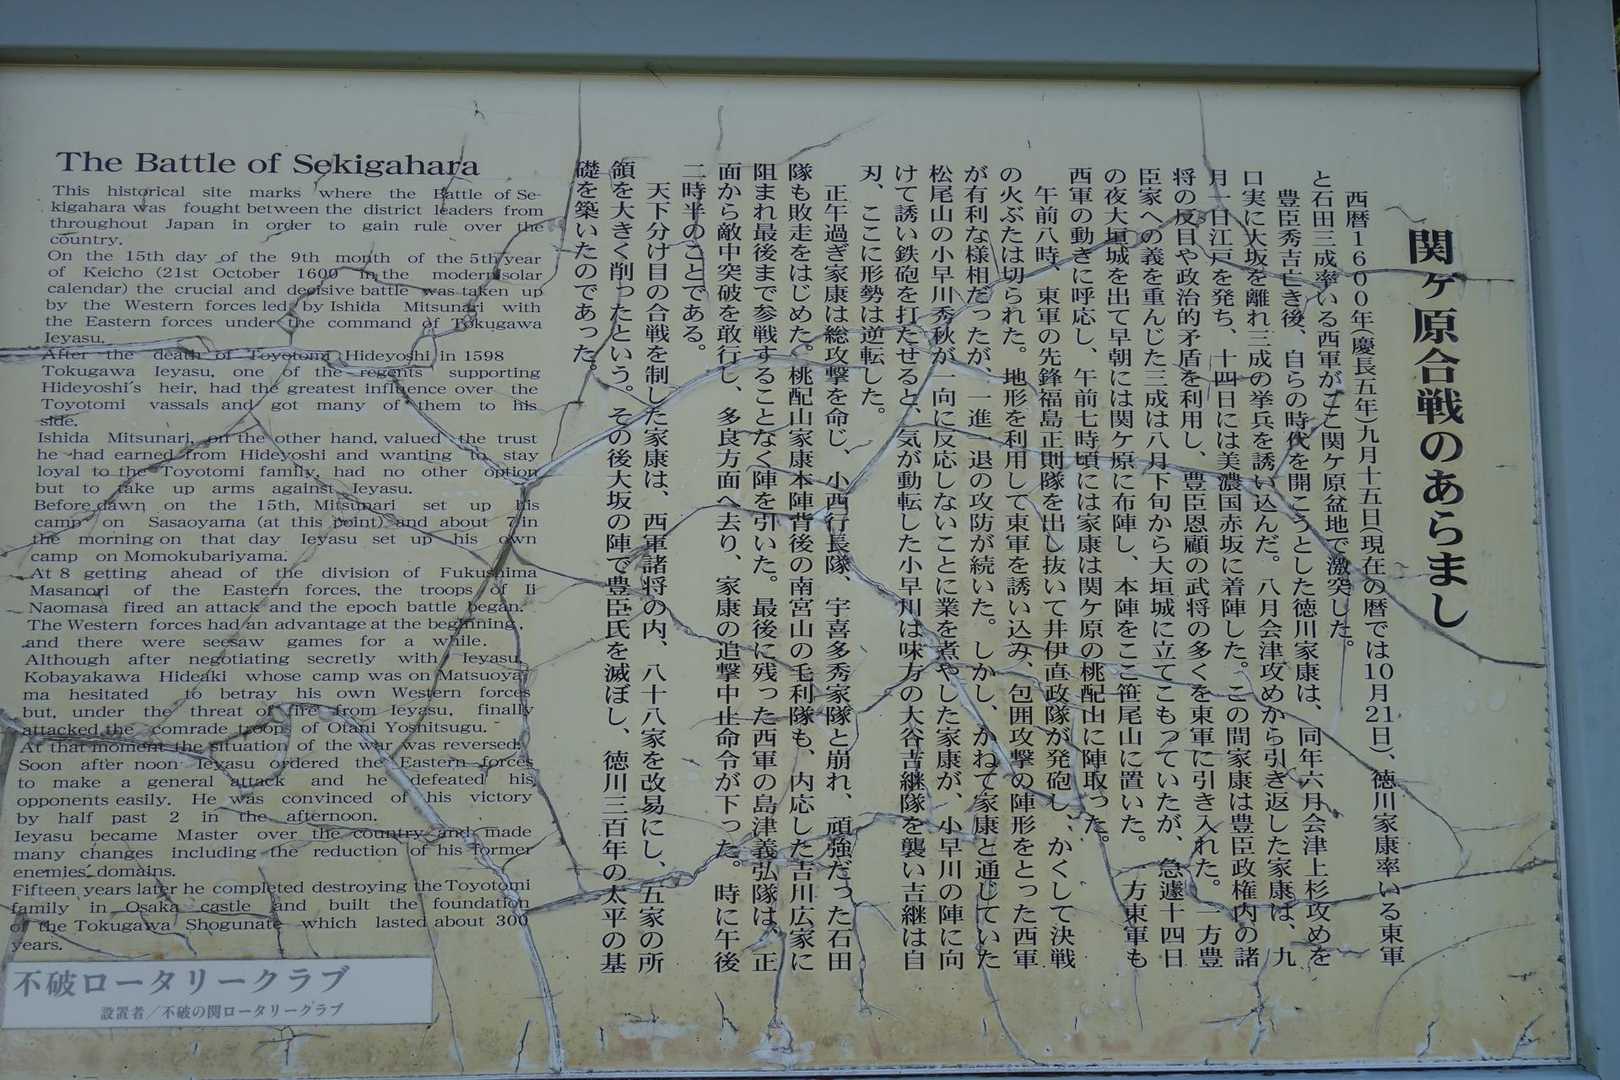 関ケ原合戦のあらまし
西暦1600年(慶長五年)九月十五日(現在の暦では10月21日)、徳川家康率いる東軍
と石田三成率いる西軍がここ関ケ原盆地で激突した。
豊臣秀吉亡き後、自らの時代を開こうとした徳川家康は、同年六月会津上杉攻めを
口実に大坂を離れ三成の挙兵を誘い込んだ。八月会津攻めから引き返した家康は、九
月一日江戸を発ち、十四日には美濃国赤坂に着陣した。この間家康は豊臣政権内の諸
将の反目や政治的矛盾を利用し、豊臣恩顧の武将の多くを東軍に引き入れた。一方豊
臣家への義を重んじた三成は八月下旬から大垣城に立てこもっていたが、急遽十四日
の夜大垣城を出て早朝には関ケ原に布陣し、本陣をここ笹尾山に置いた。 方東軍も
西軍の動きに呼応し、午前七時頃には家康は関ケ原の桃配山に陣取った。
午前八時、東軍の先鋒福島正則隊を出し抜いて井伊直政隊が発砲し、かくして決戦
の火ぶたは切られた。地形を利用して東軍を誘い込み、包囲攻撃の陣形をとった西軍
が有利な様相だったが、一進一退の攻防が続いた。しかし、かねて家康と通じていた
松尾山の小早川秀秋が一向に反応しないことに業を煮やした家康が、小早川の陣に向
けて誘い鉄砲を打たせると、気が動転した小早川は味方の大谷吉継隊を襲い吉継は自
刃、ここに形勢は逆転した。
正午過ぎ家康は総攻撃を命じ、小西行長隊、宇喜多秀家隊と崩れ、頑強だった石田
隊も敗走をはじめた。桃配山家康本陣背後の南宮山の毛利隊も、内応した吉川広家に
阻まれ最後まで参戦することなく陣を引いた。最後に残った西軍の島津義弘隊は、正
面から敵中突破を敢行し、多良方面へ去り、家康の追撃中止命令が下った。時に午後
二時半のことである。
天下分け目の合戦を制した家康は、西軍諸将の内、八十八家を改易にし、五家の所
領を大きく削ったという。その後大坂の陣で豊臣氏を滅ぼし、徳川三百年の太平の基
礎を築いたのであった。
The Battle of Sekigahara
This historical site marks where the Battle of Se-
kigahara was fought between the district leaders from
throughout Japan in order to gain rule over the
country.
On the 15th day of the 9th month of the 5th year
of Keicho (21st October 1600 in the modern solar
calendar) the crucial and decisive battle was taken up
by the Western forces led by Ishida Mitsunari with
the Eastern forces under the command of Tokugawa
Ieyasu.
After the death of Toyotomi Hideyoshi in 1598
Tokugawa Ieyasu, one of the regents supporting
Hideyoshi's heir, had the greatest influence over the
Toyotomi vassals and got many of them to his
side.
Ishida Mitsunari, on the other hand, valued the trust
he had earned from Hideyoshi and wanting to stay
loyal to the Toyotomi family, had no other option
but to take up arms against Ieyasu.
Before dawn on the 15th, Mitsunari set up his
camp on Sasaoyama (at this point) and about 7 in
the morning on that day Ieyasu set up his own
camp on Momokubariyama.
At 8 getting ahead of the division of Fukushima
Masanori of the Eastern forces, the troops of Ii
Naomasa fired an attack and the epoch battle began.
The Western forces had an advantage at the beginning,
and there were seesaw games for a while.
Although after negotiating secretly with Ieyasu,
Kobayakawa Hideaki whose camp was on Matsuoya-
ma hesitated to betray his own Western forces
but, under the threat of fire from Ieyasu, finally
attacked the comrade troop of Otani Yoshitsugu.
At that moment the situation of the war was reversed.
Soon after noon Ieyasu ordered the Eastern forces
to make a general attack and he defeated his
opponents easily. He was convinced of his victory
by half past 2 in the afternoon.
Ieyasu became Master over the country and made
many changes including the reduction of his former
enemies' domains.
Fifteen years later he completed destroying the Toyotomi
family in Osaka castle and built the foundation
of the Tokugawa Shogunate which lasted about 300
years.
不破ロータリークラブ
設置者／不破の関ロータリークラブ